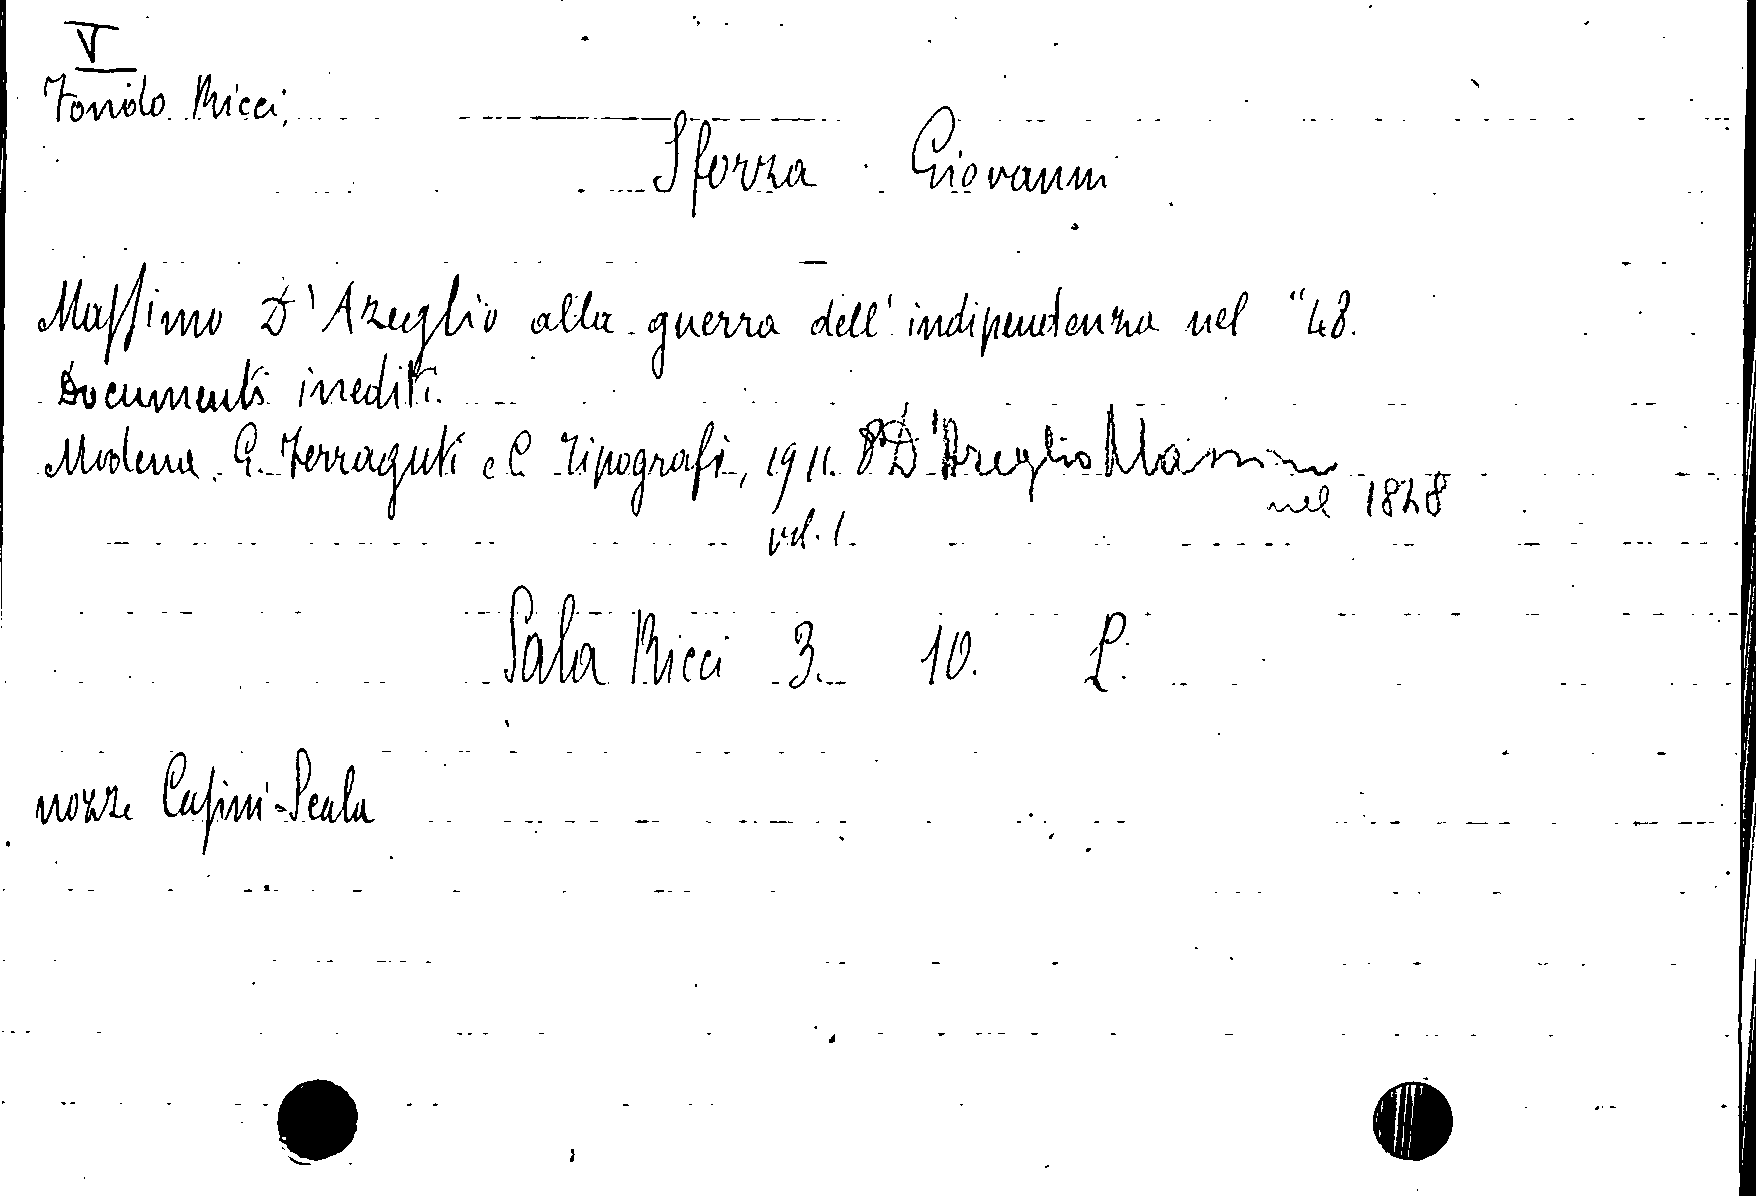 V
Fondo Ricci,
Sforza Giovanni
Massimo D'Azeglio alla guerra dell'indipendenza nel "48.
Documenti inediti.
Modena. G. Ferraguti e C. Tipografi, 1911. 8° D'Azeglio Massimo
nel 1848
vol. 1.
Sala Ricci 3. 10. L.
nozze Casini-Scala